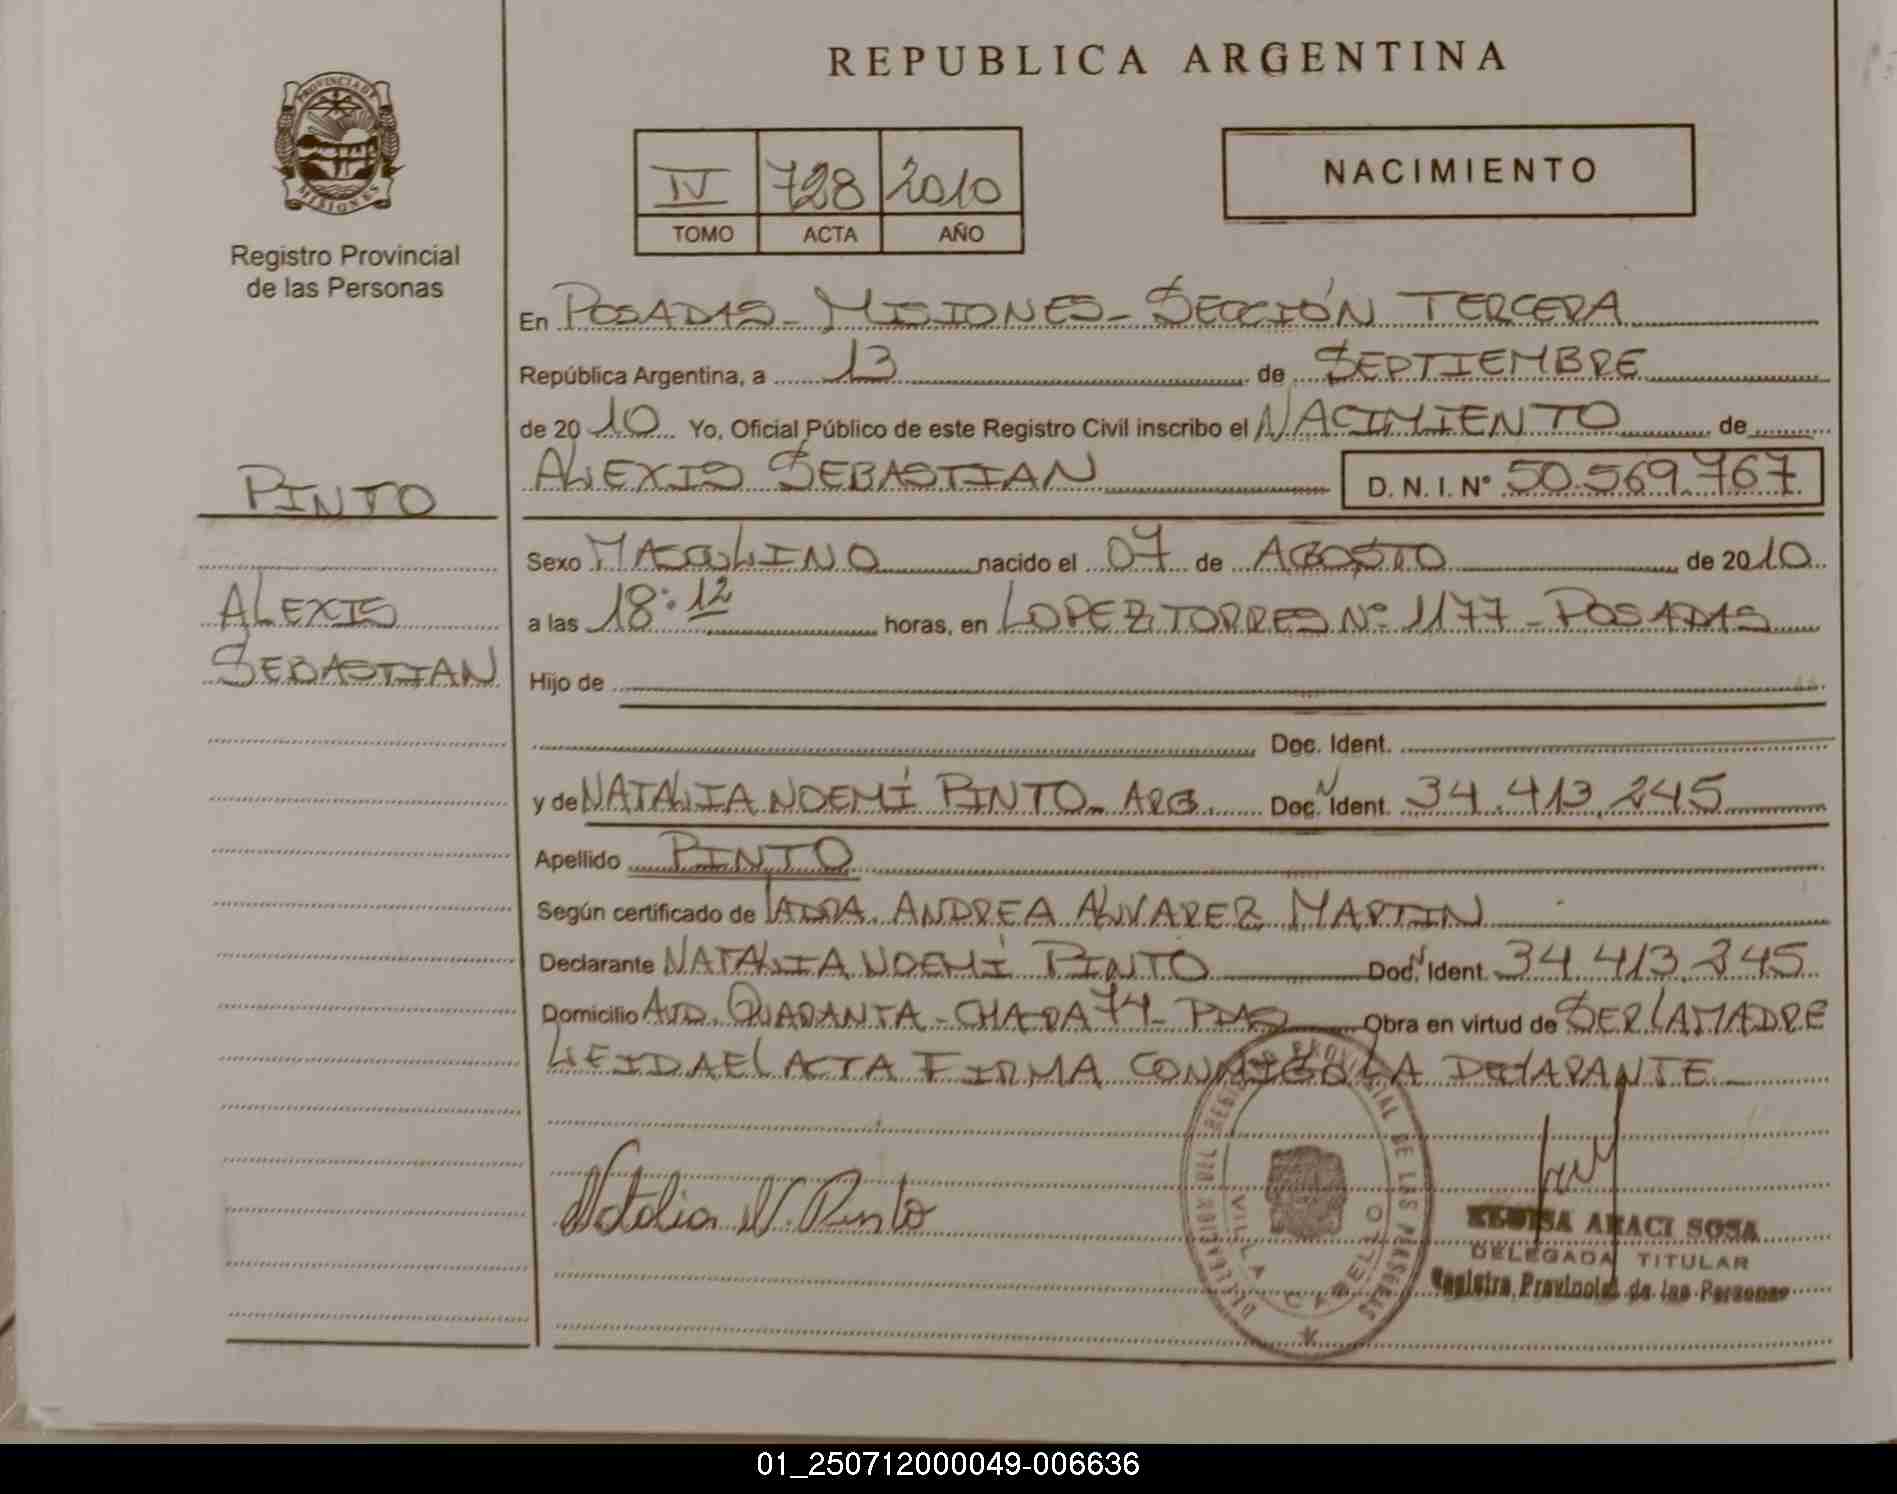 REPUBLICA ARGENTINA
PROVINCIA DE
MISIONES
Registro Provincial
de las Personas
IV 728 2010
TOMO ACTA AÑO
NACIMIENTO
En POSADAS - MISIONES - SECCIÓN TERCERA
República Argentina, a 13 de SEPTIEMBRE
de 2010 Yo, Oficial Público de este Registro Civil inscribo el NACIMIENTO de
ALEXIS SEBASTIAN D. N. I. Nº 50.569.767
PINTO
ALEXIS
SEBASTIAN
Sexo MASCULINO nacido el 07 de AGOSTO de 2010
a las 18:12 horas, en LOPEZ TORRES Nº 1177 - POSADAS
Hijo de
Doc. Ident.
y de NATALIA NOEMÍ PINTO - ARG. Doc. N Ident. 34.413.245
Apellido PINTO
Según certificado de LA DRA. ANDREA ALVAREZ MARTIN
Declarante NATALIA NOEMÍ PINTO Doc. N Ident. 34.413.245
Domicilio AVD. QUARANTA - CHACRA 74 - PDAS Obra en virtud de SER LA MADRE
LEIDA EL ACTA FIRMA CONMIGO LA DECLARANTE
Natalia N. Pinto
DELEGACION DEL REGISTRO PROVINCIAL DE LAS PERSONAS
VILLA CABELLO
ARACI SOSA
DELEGADA TITULAR
Registro Provincial de las Personas
01_250712000049-006636